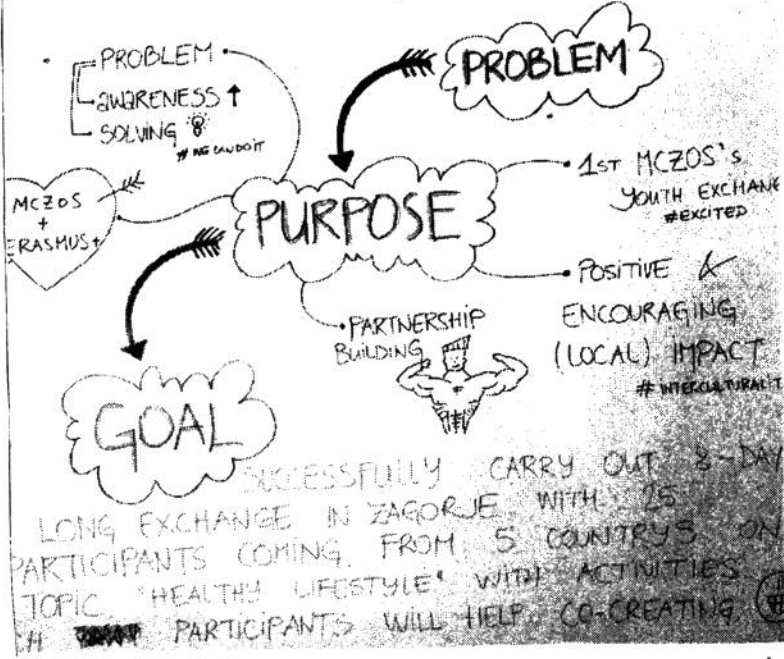 PROBLEM
PROBLEM
AWARENESS
SOLVING
#WECANDOIT
MCZOS
+
ERASMUS+
PURPOSE
1ST MCZOS's
YOUTH EXCHANGE
#EXCITED
POSITIVE &
ENCOURAGING
(LOCAL) IMPACT
#INTERCULTURALIT
PARTNERSHIP
BUILDING
GOAL
SUCCESSFULLY CARRY OUT 8-DAY
LONG EXCHANGE IN ZAGORJE WITH 25
PARTICIPANTS COMING FROM 5 COUNTRYS ON
TOPIC "HEALTHY LIFESTYLE" WITH ACTIVITIES
PARTICIPANTS WILL HELP CO-CREATING